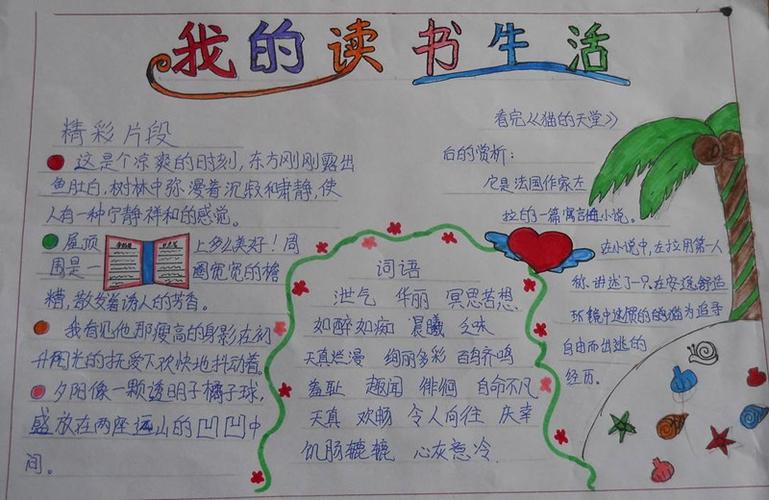 我的读书生活
精彩片段
这是个凉爽的时刻,东方刚刚露出
鱼肚白,树林中弥漫着沉寂和肃静,使
人有一种宁静祥和的感觉。
屋顶 上多么美好!周
围是一 圈宽宽的檐
糟,散发着诱人的芳香。
我看见他那瘦高的身影在初
升阳光的抚爱下欢快地抖动着。
夕阳像一颗透明子橘子球,
盛放在两座远山的凹凹中
间。
词语
泄气 华丽 冥思苦想
如醉如痴 晨曦 乏味
天真烂漫 绚丽多彩 百鸟齐鸣
羞耻 趣闻 徘徊 自命不凡
天真 欢畅 令人向往 庆幸
饥肠辘辘 心灰意冷
看完《猫的天堂》
后的赏析:
它是法国作家左
拉的一篇寓言性小说。
在小说中,左拉用第一人
称,讲述了只在安逸舒适
环境中过惯的的猫为追寻
自由而出逃的
经历。